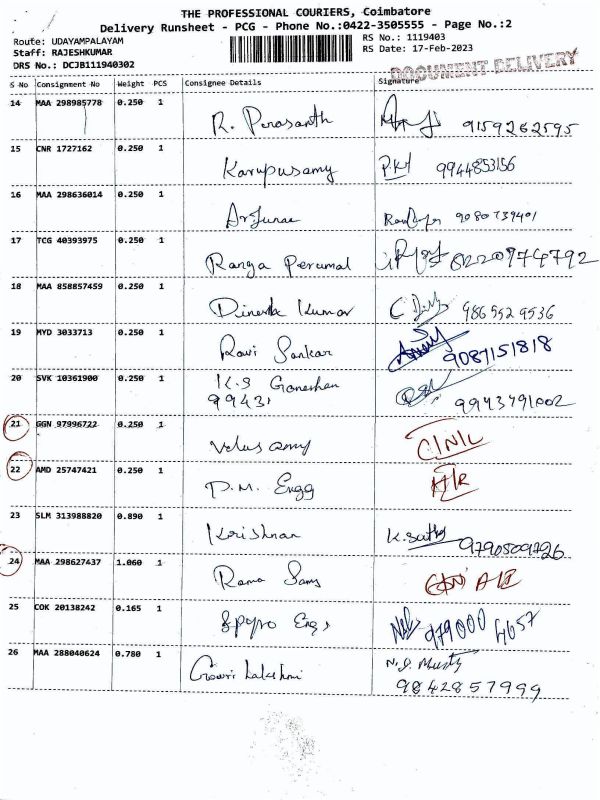 THE PROFESSIONAL COURIERS, Coimbatore
Delivery Runsheet - PCG - Phone No.:0422-3505555 - Page No.:2
Route: UDAYAMPALAYAM RS No.: 1119403
Staff: RAJESHKUMAR RS Date: 17-Feb-2023
DRS No.: DCJB111940302
DOCUMENT DELIVERY
S No Consignment No Weight PCS Consignee Details Signature
14 MAA 298985778 0.250 1
R. Perasanth 9159262595
15 CNR 1727162 0.250 1
Karupusamy 9944853156
16 MAA 298636014 0.250 1
Arjunae 9080739401
17 TCG 40393975 0.250 1
Ranga Perumal 8220974792
18 MAA 858857459 0.250 1
Dinesh Kumar 9865929536
19 MYD 3033713 0.250 1
Ravi Sankar 9087151818
20 SVK 10361900 0.250 1
K.S Ganeshan
99431 9943791002
21 GGN 97996722 0.250 1
Velusamy
22 AMD 25747421 0.250 1
P.M. Engg
23 SLM 313988820 0.890 1
Krishnan K.Sathy 9790509726
24 MAA 298627437 1.060 1
Rama Sams
25 COK 20138242 0.165 1
Engs 979000 4657
26 MAA 288040624 0.780 1
Gowri Lakshmi N.S. Murthy
9842857999